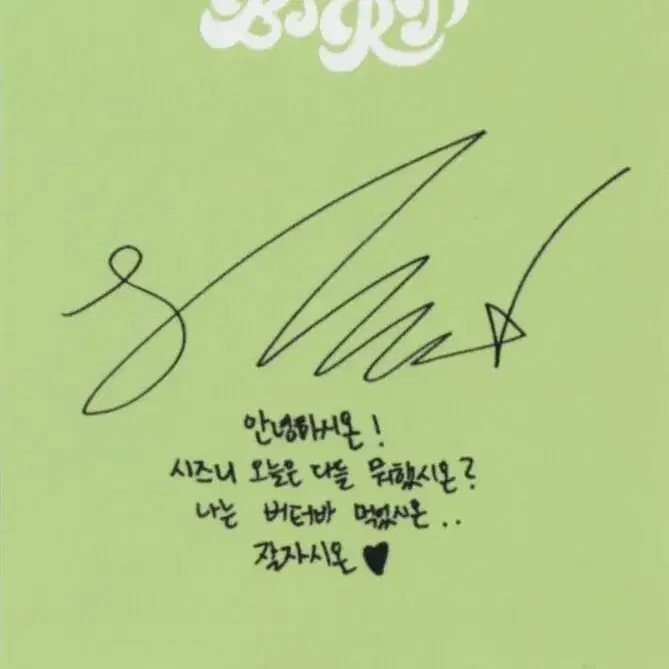 안녕하시온!
시즈니 오늘은 다들 뭐했시온?
나는 버터바 먹었시온..
잘자시온 ♥